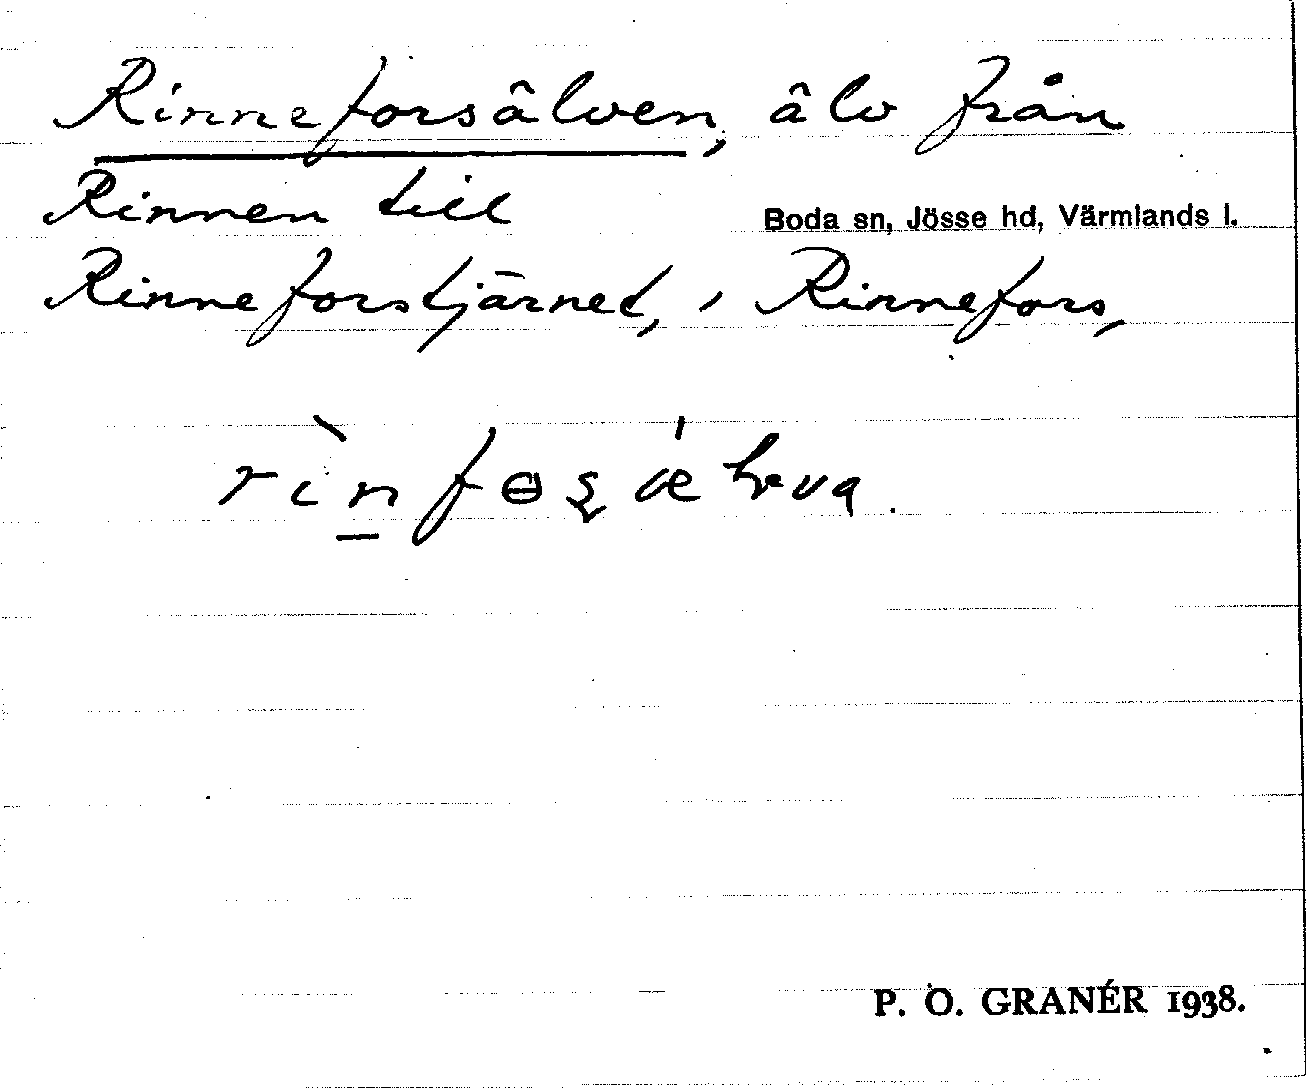 Rinneforsälven, älv från
Rinnen till
Boda sn, Jösse hd, Värmlands l.
Rinneforstjärnet, i Rinnefors,
P. O. GRANÉR 1938.